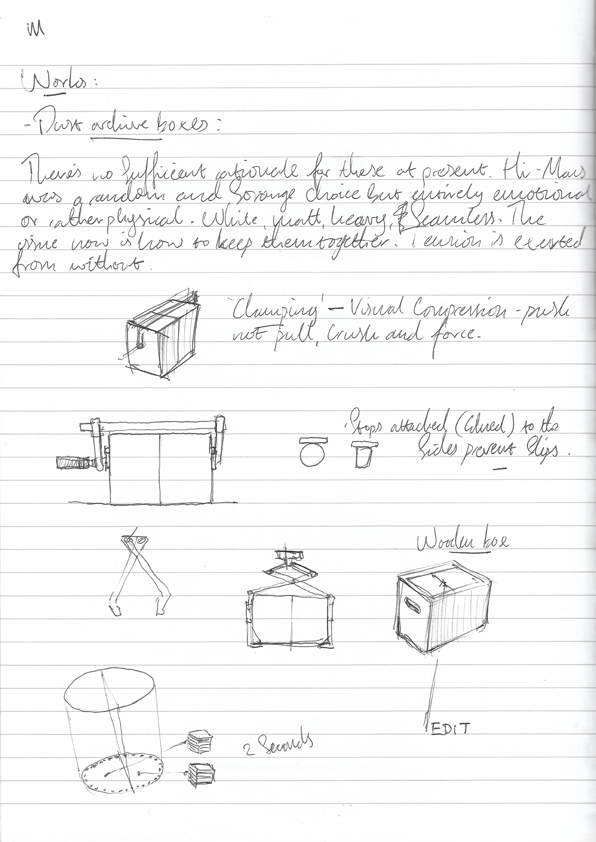 Works:
- Dust archive boxes:
There's no sufficient rationale for these at present. Hi-Macs
was a random and strange choice but entirely emotional
or rather physical. White, matt, heavy, & Seamless. The
issue now is how to keep them together. Tension is exerted
from without.
'Clamping' – Visual Compression - push
not pull, crush and force.
Stops attached (Glued) to the
Sides prevent Slips.
Wooden box
EDIT
2 Seconds